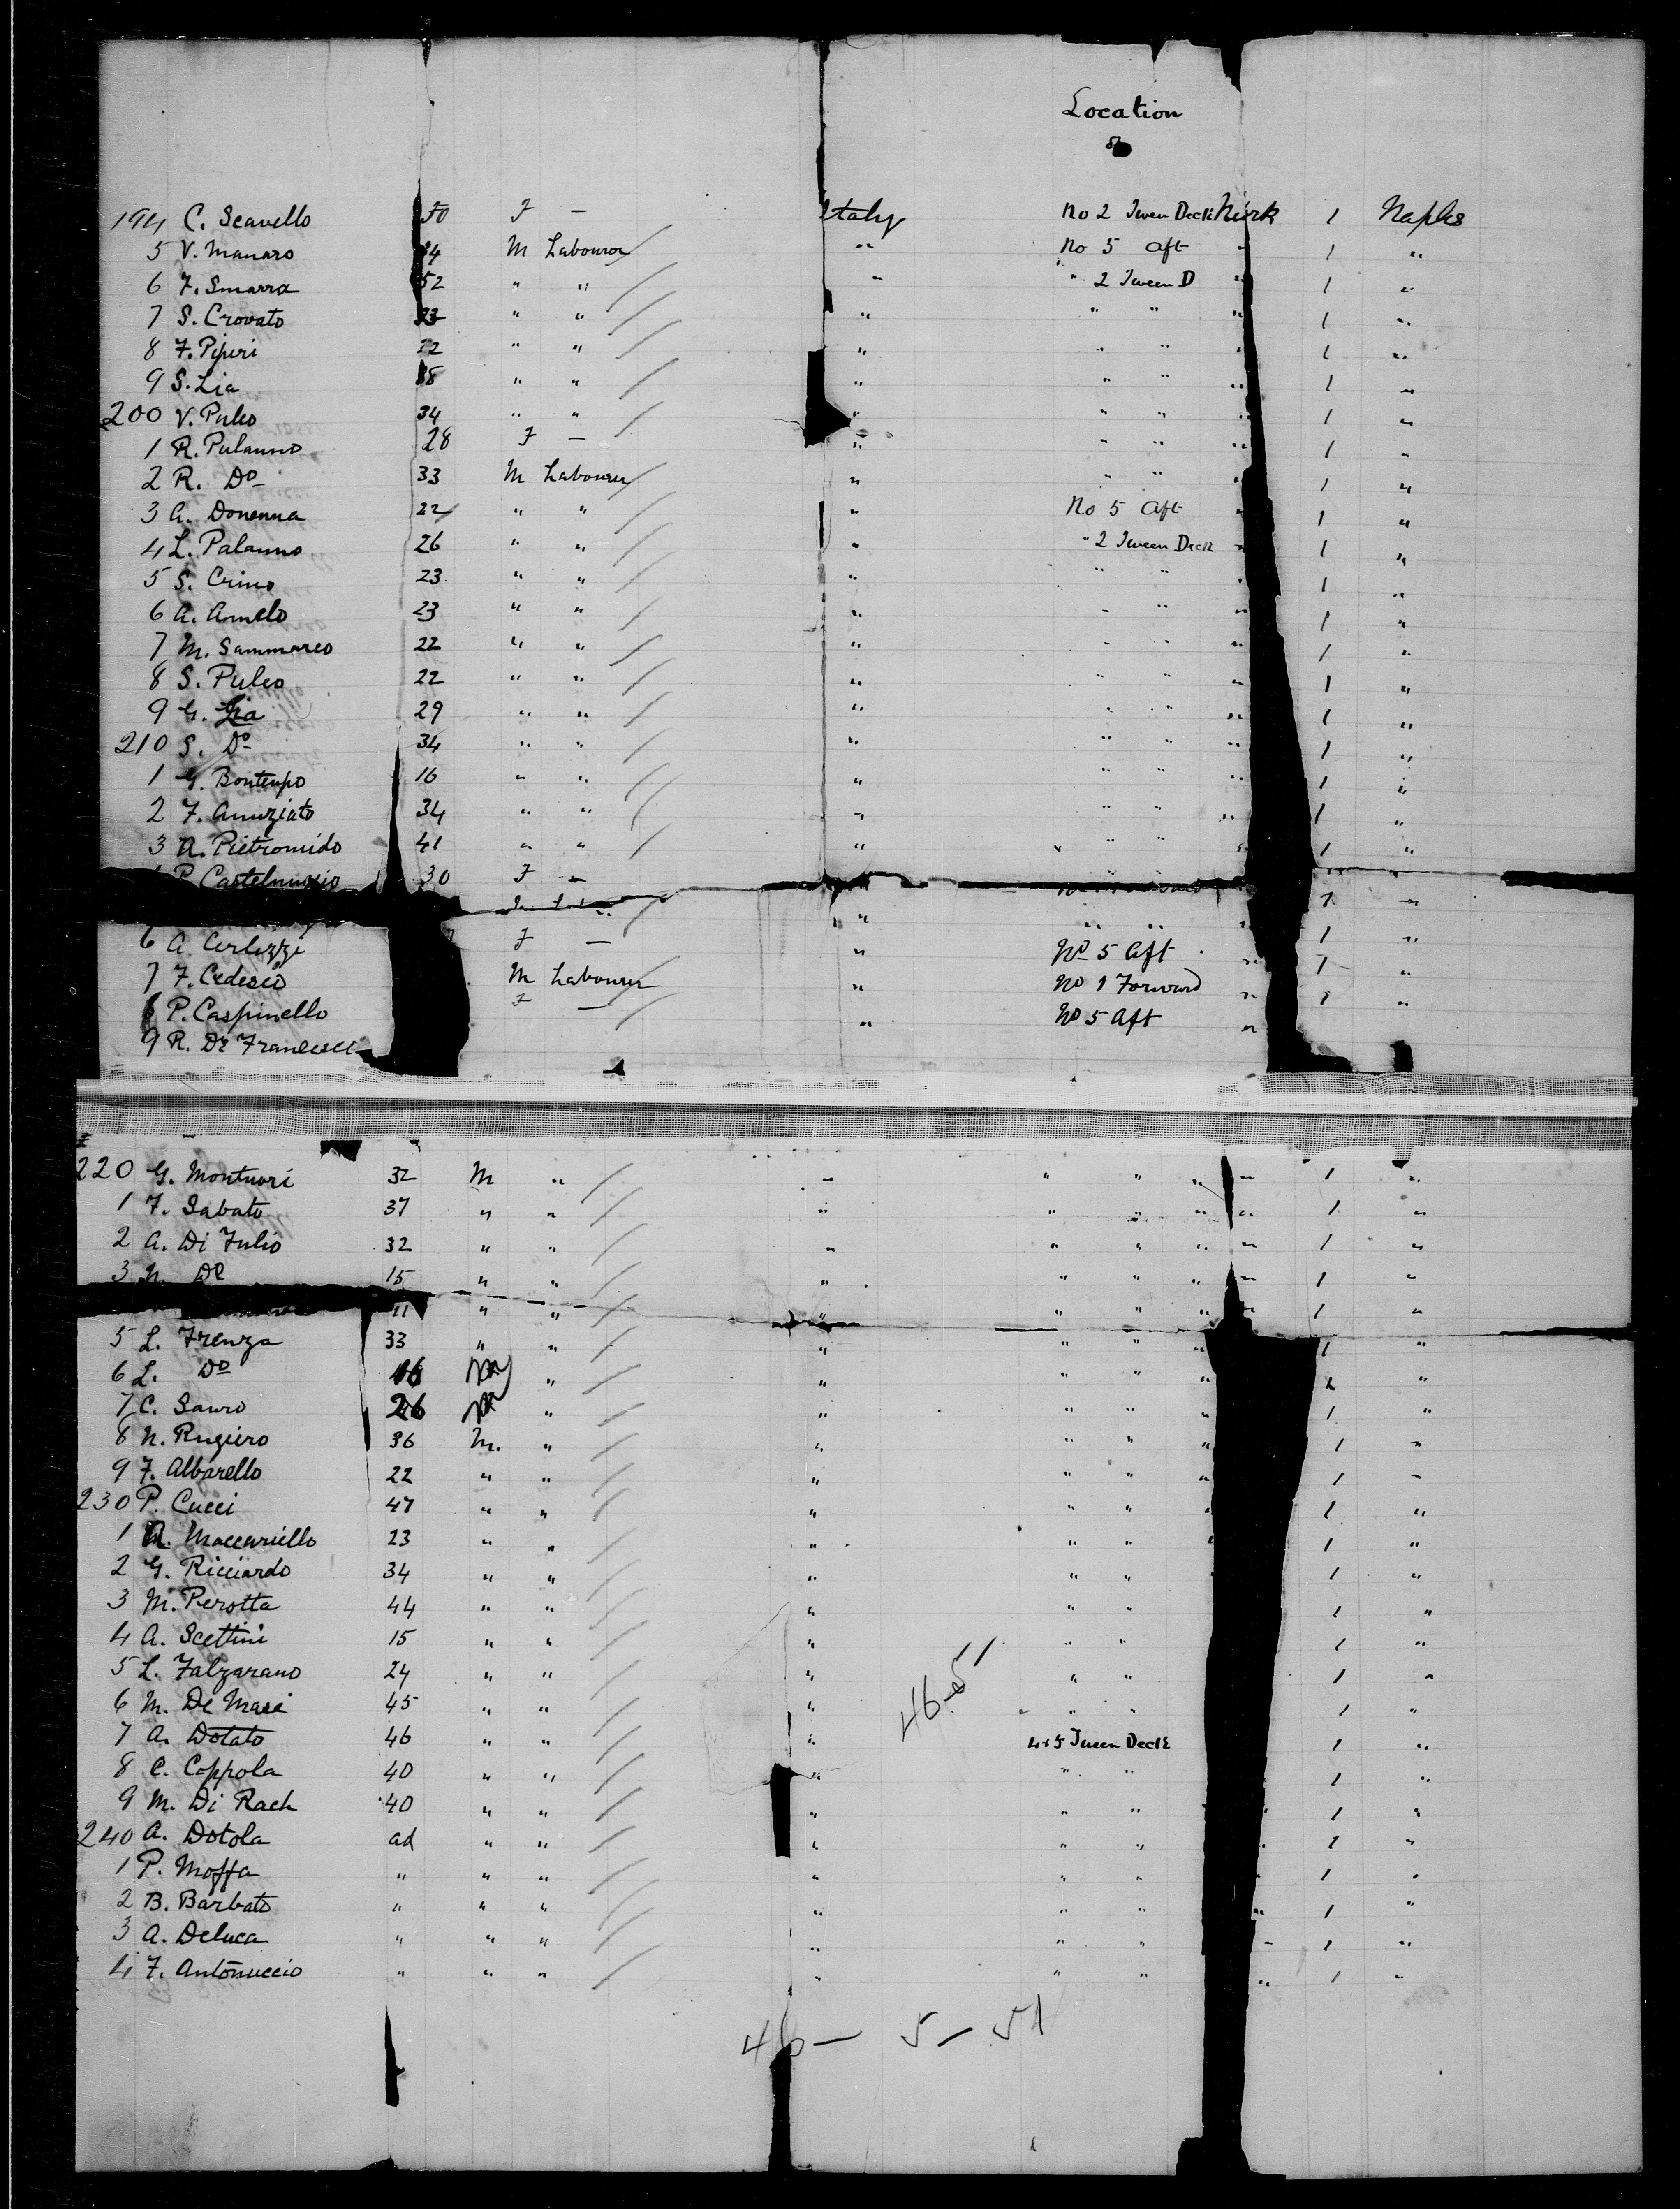 Location
194 C. Scavello 50 F — Italy No 2 Tween Deck 1 Naples
5 V. Manaro 24 M Labourer " No 5 Aft " 1 "
6 F. Smarra 52 " " " " 2 Tween D " 1 "
7 S. Crovato 33 " " " " " " 1 "
8 F. Piperi 22 " " " " " " 1 "
9 S. Lia 38 " " " " " " 1 "
200 V. Puleo 34 " " " " " " 1 "
1 R. Pulanno 28 F — " " " " 1 "
2 R. Do 33 M Labourer " " " " 1 "
3 A. Donenna 22 " " " No 5 Aft " 1 "
4 L. Palanno 26 " " " " 2 Tween Deck " 1 "
5 S. Crino 23 " " " " " " 1 "
6 A. Amelo 23 " " " " " " 1 "
7 M. Sammarco 22 " " " " " " 1 "
8 S. Puleo 22 " " " " " " 1 "
9 G. Lia 29 " " " " " " 1 "
210 S. Do 34 " " " " " " 1 "
1 G. Bontempo 16 " " " " " " 1 "
2 F. Anuziato 34 " " " " " " 1 "
3 A. Pietromido 41 " " " " " " 1 "
P. Castelnuovio 30 F —
6 A. Carlozzi F — " No 5 Aft " 1 "
7 F. Cedesco M Labourer " No 1 Forward " 1 "
8 P. Caspinello F — " No 5 Aft "
9 R. De Francesci
220 G. Montuori 32 M " " " " " " 1 "
1 F. Sabato 37 " " " " " " " 1 "
2 A. Di Julio 32 " " " " " " " 1 "
3 N. Do 15 " " " " " " " 1 "
11 " " " " " " " 1 "
5 L. Frenza 33 " " " " " " 1 "
6 L. Do 16 " " " " " 1 "
7 C. Sauro 26 " " " " " 1 "
8 N. Rugiero 36 M. " " " " " 1 "
9 F. Albarello 22 " " " " " " 1 "
230 P. Cucci 47 " " " " " " 1 "
1 M. Maccariello 23 " " " " " " 1 "
2 G. Ricciardo 34 " " " " " 1 "
3 M. Perotta 44 " " " " " 1 "
4 A. Scettini 15 " " " " " 1 "
5 L. Falzarano 24 " " " " " 1 "
6 M. De Masi 45 " " " " " " 1 "
7 A. Dotato 46 " " " 4+5 Tween Deck 1 "
8 C. Coppola 40 " " " " " 1 "
9 M. Di Rach 40 " " " " " " 1 "
240 A. Dotola ad " " " " " " 1 "
1 P. Moffa " " " " " " " 1 "
2 B. Barbato " " " " " " " 1 "
3 A. Deluca " " " " " " " 1 "
4 F. Antonuccio " " " " " " " 1 "
46 — 5 — 51